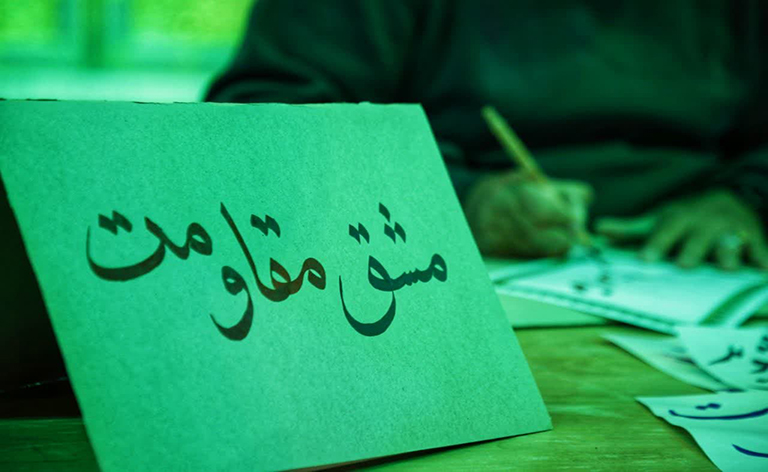 مشق مقاومت